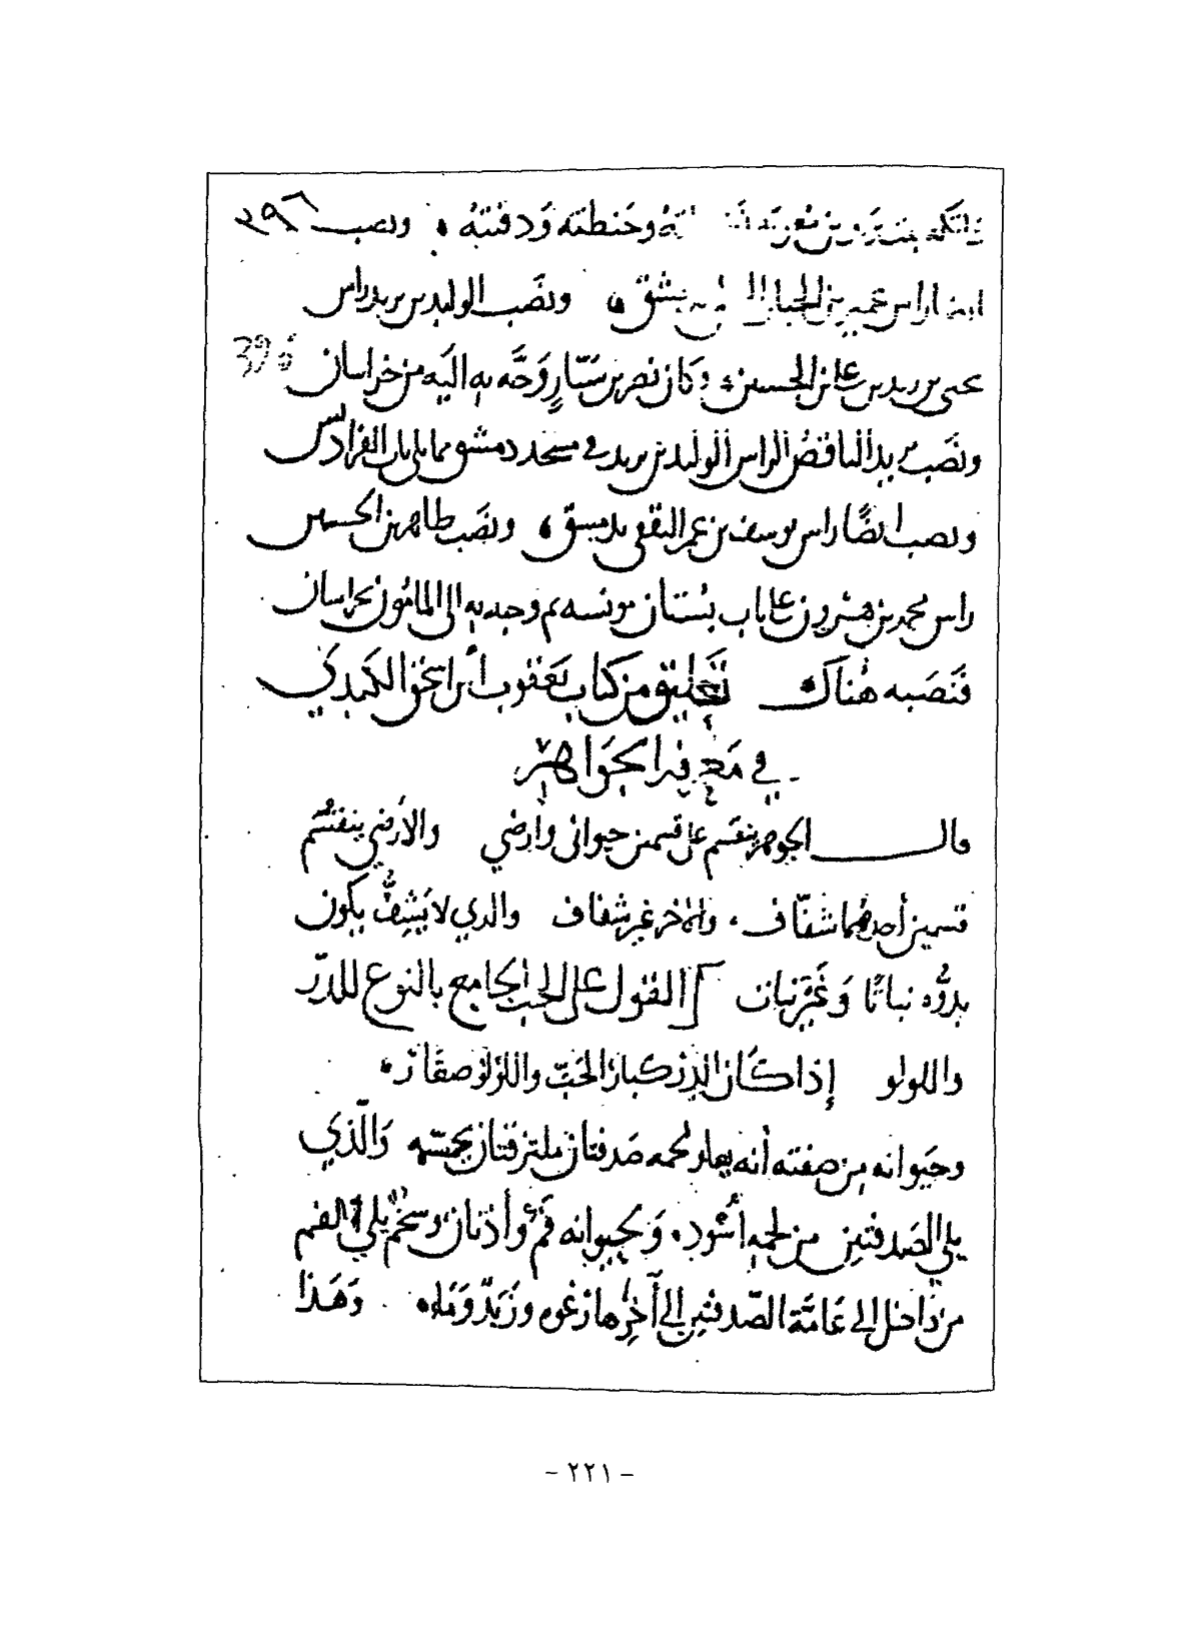 عاتكه بنت يزيد بن معوية وحنطته ودفنته ونصب ٣٩٦
ايضا راس عمير بن الحباب بدمشق ونصب الوليد بن يزيد راس
396
يحيى بن زيد بن على بن الحسين وكان نصر بن سيّار وجَّه به اليه من خراسان
ونصب يزيد الناقص الراس الوليد بن يزيد في مسجد دمشق مما يلي باب الفراديس
ونصب ايضًا راس يوسف بن عمر الثقفي بدمشق ونصَب طاهر بن الحسين
راس محمد بن هرون على باب بُستان مونسه ثم وجه به الى المامُون بخراسان
فنَصَبه هُناك تعليق من كتاب يَعقوب ابن اسحق الكندي
في مَعرفه الجَواهر
قال الجوهر ينقسم على قسمين حيوانى وأرضي والأرضي ينقسم
قسمين أحدهما شفّاف والآخر غير شفاف والذي لا يَشِفُّ يكون
بدوُّه نباتًا وَغَير نبات القول على الحب الجامع بالنوع للدرّ
واللولو إذا كان الدر كبار الحَبّ واللؤلؤ صغار
وحيوانه من صفته أنه يعلو لحمه صَدفتان ملتزقتان بجسمه وَالّذي
يلي الصَدفتين من لحمه أسود وَلحيوانه فَم وأذنان وشحم يلي الفم
من داخل إلى غاية الصّدفتين إلى آخرها رغوه وزَبَدٌ وَماء وَهَذا
- ٢٢١ -